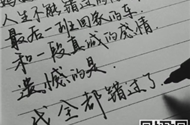 人这不能错过的有
最后一班回家的车
和一段真诚的感情
遗憾的是
我全部错过了